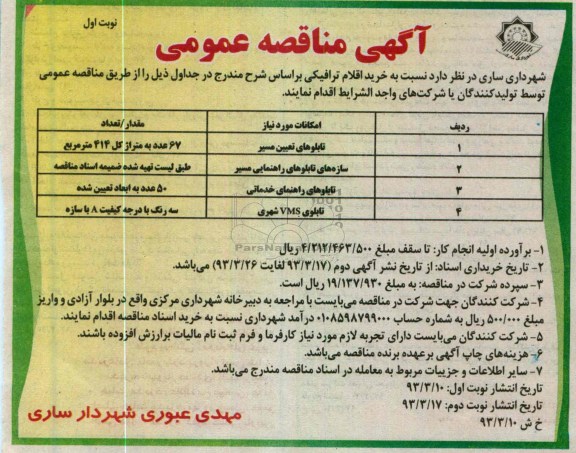 نوبت اول
آگهی مناقصه عمومی
شهرداری ساری در نظر دارد نسبت به خرید اقلام ترافیکی براساس شرح مندرج در جداول ذیل را از طریق مناقصه عمومی
توسط تولیدکنندگان یا شرکت‌های واجد الشرایط اقدام نمایند.
ردیف امکانات مورد نیاز مقدار/تعداد
۱ تابلوهای تعیین مسیر ۶۷ عدد به متراژ کل ۴۱۴ مترمربع
۲ سازه‌های تابلوهای راهنمایی مسیر طبق لیست تهیه شده ضمیمه اسناد مناقصه
۳ تابلوهای راهنمای خدماتی ۵۰ عدد به ابعاد تعیین شده
۴ تابلوی VMS شهری سه رنگ با درجه کیفیت ۸ با سازه
۱- برآورده اولیه انجام کار: تا سقف مبلغ ۴/۲۱۲/۴۶۳/۵۰۰ ریال
۲- تاریخ خریداری اسناد: از تاریخ نشر آگهی دوم (۹۳/۳/۱۷ لغایت ۹۳/۳/۲۶) می‌باشد.
۳- سپرده شرکت در مناقصه: به مبلغ ۱۹/۱۳۷/۹۳۰ ریال است.
۴- شرکت کنندگان جهت شرکت در مناقصه می‌بایست با مراجعه به دبیرخانه شهرداری مرکزی واقع در بلوار آزادی و واریز
مبلغ ۵۰۰/۰۰۰ ریال به شماره حساب ۰۱۰۸۵۹۸۷۹۹۰۰۰ درآمد شهرداری نسبت به خرید اسناد مناقصه اقدام نمایند.
۵- شرکت کنندگان می‌بایست دارای تجربه لازم مورد نیاز کارفرما و فرم ثبت نام مالیات برارزش افزوده باشند.
۶- هزینه‌های چاپ آگهی برعهده برنده مناقصه می‌باشد.
۷- سایر اطلاعات و جزییات مربوط به معامله در اسناد مناقصه مندرج می‌باشد.
تاریخ انتشار نوبت اول: ۹۳/۳/۱۰
تاریخ انتشار نوبت دوم: ۹۳/۳/۱۷
خ ش ۹۳/۳/۱۰
مهدی عبوری شهردار ساری